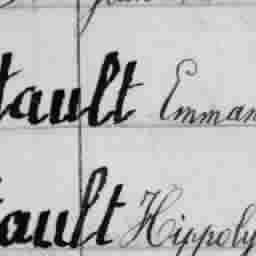 tault Emman
ault Hippoly